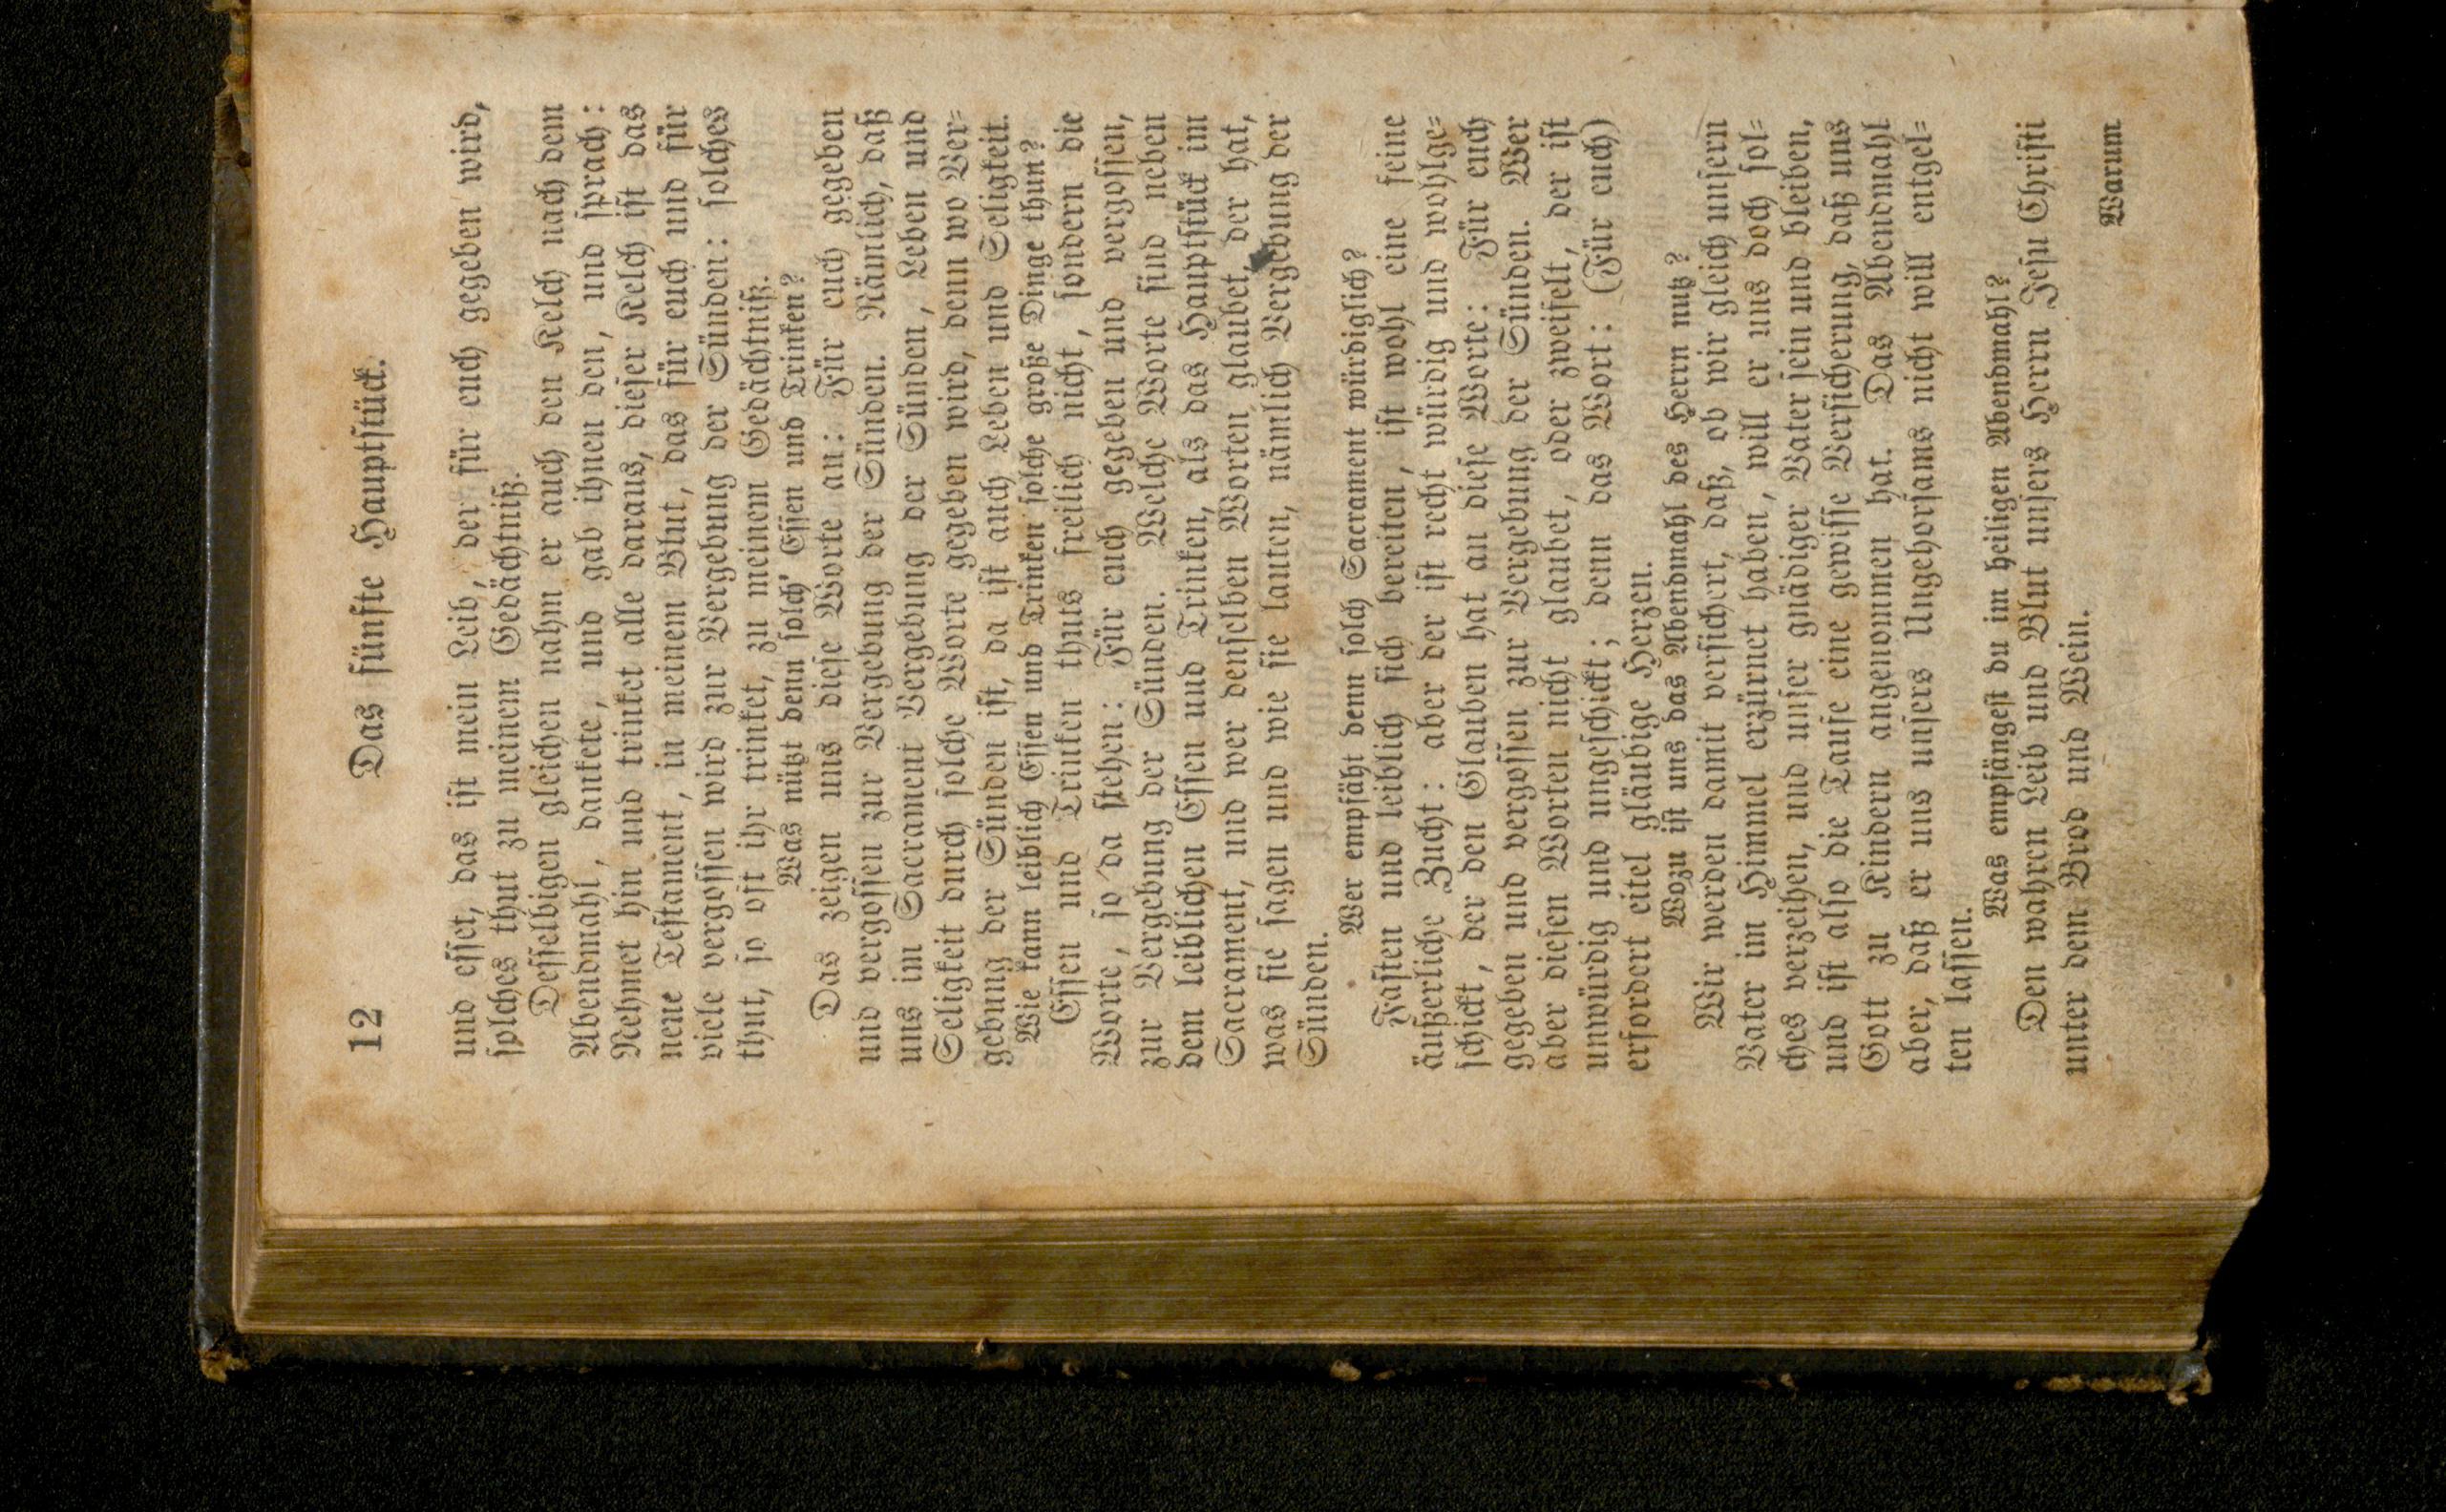 12 Das fünfte Hauptstück.
und esset, das ist mein Leib, der für euch gegeben wird,
solches thut zu meinem Gedächtniß.
Desselbigen gleichen nahm er auch den Kelch nach dem
Abendmahl, dankete, und gab ihnen den, und sprach:
Nehmet hin und trinket alle daraus, dieser Kelch ist das
neue Testament, in meinem Blut, das für euch und für
viele vergossen wird zur Vergebung der Sünden: solches
thut, so oft ihr trinket, zu meinem Gedächtniß.
Was nützt denn solch' Essen und Trinken?
Das zeigen uns diese Worte an: Für euch gegeben
und vergossen zur Vergebung der Sünden. Nämlich, daß
uns im Sacrament Vergebung der Sünden, Leben und
Seligkeit durch solche Worte gegeben wird, denn wo Ver-
gebung der Sünden ist, da ist auch Leben und Seligkeit.
Wie kann leiblich Essen und Trinken solche große Dinge thun?
Essen und Trinken thuts freilich nicht, sondern die
Worte, so da stehen: Für euch gegeben und vergossen,
zur Vergebung der Sünden. Welche Worte sind neben
dem leiblichen Essen und Trinken, als das Hauptstück im
Sacrament, und wer denselben Worten glaubet, der hat,
was sie sagen und wie sie lauten, nämlich Vergebung der
Sünden.
Wer empfäht denn solch Sacrament würdiglich?
Fasten und leiblich sich bereiten, ist wohl eine feine
äußerliche Zucht: aber der ist recht würdig und wohlge-
schickt, der den Glauben hat an diese Worte: Für euch
gegeben und vergossen zur Vergebung der Sünden. Wer
aber diesen Worten nicht glaubet, oder zweifelt, der ist
unwürdig und ungeschickt; denn das Wort: (Für euch)
erfordert eitel gläubige Herzen.
Wozu ist uns das Abendmahl des Herrn nutz?
Wir werden damit versichert, daß, ob wir gleich unsern
Vater im Himmel erzürnet haben, will er uns doch sol-
ches verzeihen, und unser gnädiger Vater sein und bleiben,
und ist also die Taufe eine gewisse Versicherung, daß uns
Gott zu Kindern angenommen hat. Das Abendmahl
aber, daß er uns unsers Ungehorsams nicht will entgel-
ten lassen.
Was empfängest du im heiligen Abendmahl?
Den wahren Leib und Blut unsers Herrn Jesu Christi
unter dem Brod und Wein.
Warum